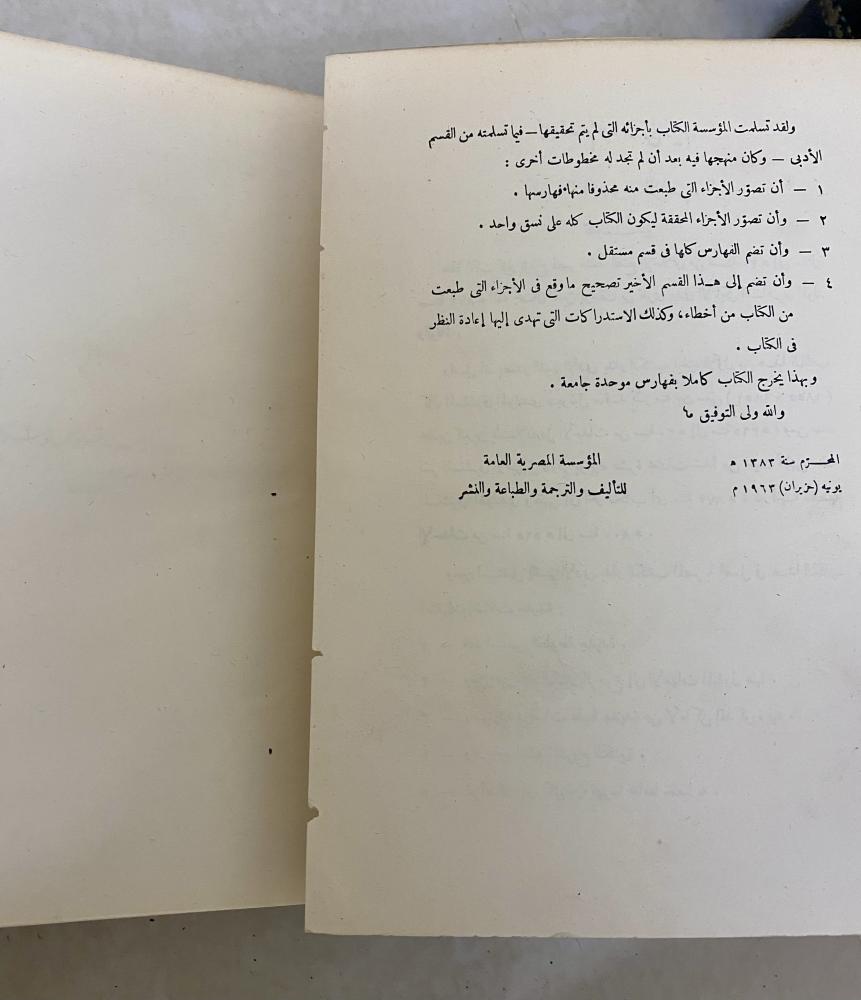 ولقد تسلمت المؤسسة الكتاب بأجزائه التى لم يتم تحقيقها — فيما تسلمته من القسم
الأدبى — وكان منهجها فيه بعد أن لم تجد له مخطوطات أخرى :
١ — أن تصوّر الأجزاء التى طبعت منه محذوفا منها فهارسها .
٢ — وأن تصوّر الأجزاء المحققة ليكون الكتاب كله على نسق واحد .
٣ — وأن تضم الفهارس كلها فى قسم مستقل .
٤ — وأن تضم إلى هــذا القسم الأخير تصحيح ما وقع فى الأجزاء التى طبعت
من الكتاب من أخطاء، وكذلك الاستدراكات التى تهدى إليها إعادة النظر
فى الكتاب .
وبهذا يخرج الكتاب كاملا بفهارس موحدة جامعة .
والله ولى التوفيق ما
المحــرّم سنة ١٣٨٣ ه المؤسسة المصرية العامة
يونيه (حزيران) ١٩٦٣ م للتأليف والترجمة والطباعة والنشر